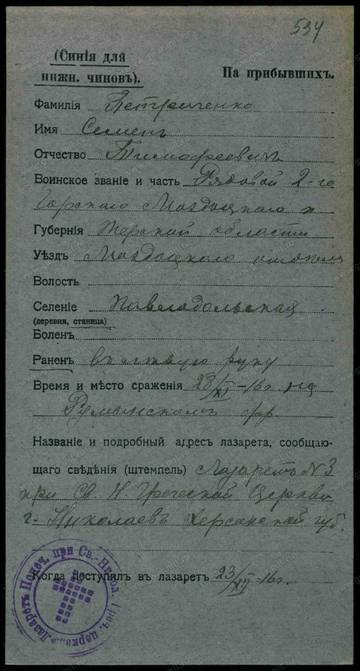 534
(Синія для
нижн. чиновъ).
На прибывшихъ.
Фамилія Петриченко
Имя Семенъ
Отчество Тимофеевичъ
Воинское званіе и часть Рядовой 2-го
Горского Моздоцкого п
Губернія Терской области
Уѣздъ Моздоцкого отдѣла
Волость
Селеніе Павлодольская
(деревня, станица)
Боленъ
Раненъ въ лѣвую руку
Время и мѣсто сраженія 23/XI-16 г. на
Румынскомъ фр.
Названіе и подробный адресъ лазарета, сообщаю-
щаго свѣдѣнія (штемпель) Лазаретъ № 3
при Св. Н. Греческой Церкви
г. Николаевъ Херсонской губ.
Когда поступилъ въ лазаретъ 23/XII-16 г.
Лазаретъ Попеч. при Св.-Никол. Греч. церкви